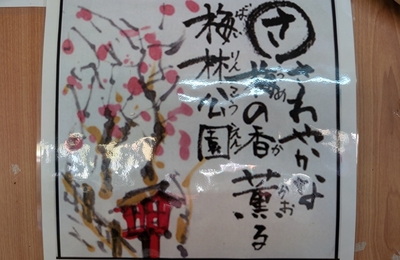 さ
さわやかな
梅の香薫る
うめ
か
かお
梅林公園
ばいりんこうえん